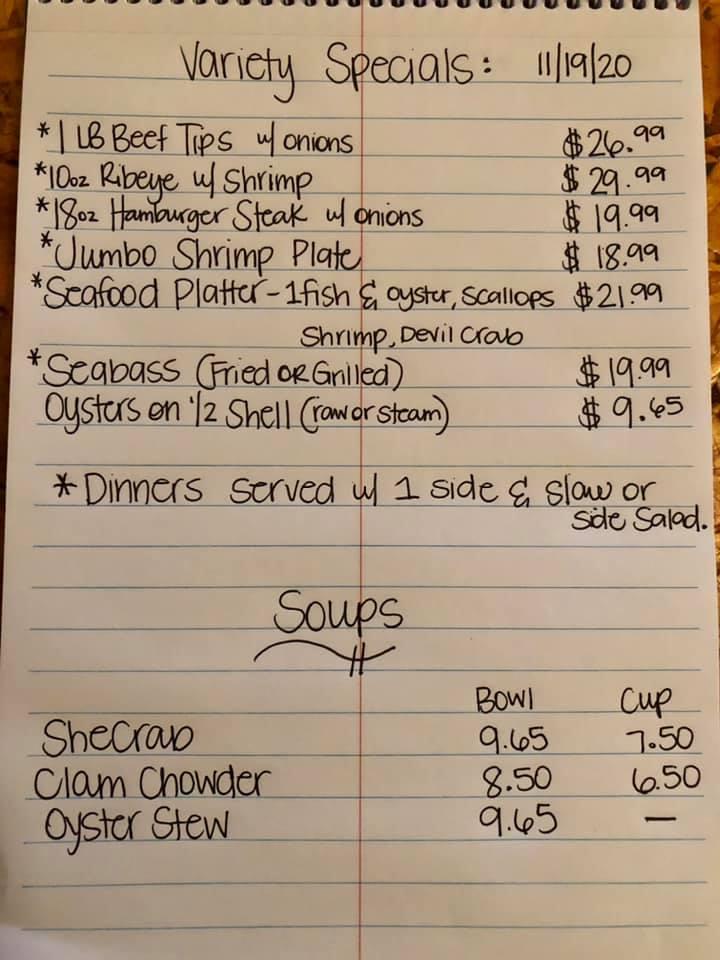 Variety Specials: 11/19/20
*1 LB Beef Tips w/ onions $26.99
*10oz Ribeye w/ Shrimp $29.99
*18oz Hamburger Steak w/ onions $19.99
*Jumbo Shrimp Plate $18.99
*Seafood Platter-1fish & oyster, scallops $21.99
Shrimp, Devil Crab
*Seabass (Fried OR Grilled) $19.99
Oysters on 1/2 Shell (raw or steam) $9.65
*Dinners served w/ 1 side & slaw or
side Salad.
Soups
Bowl Cup
SheCrab 9.65 7.50
Clam Chowder 8.50 6.50
Oyster Stew 9.65 —